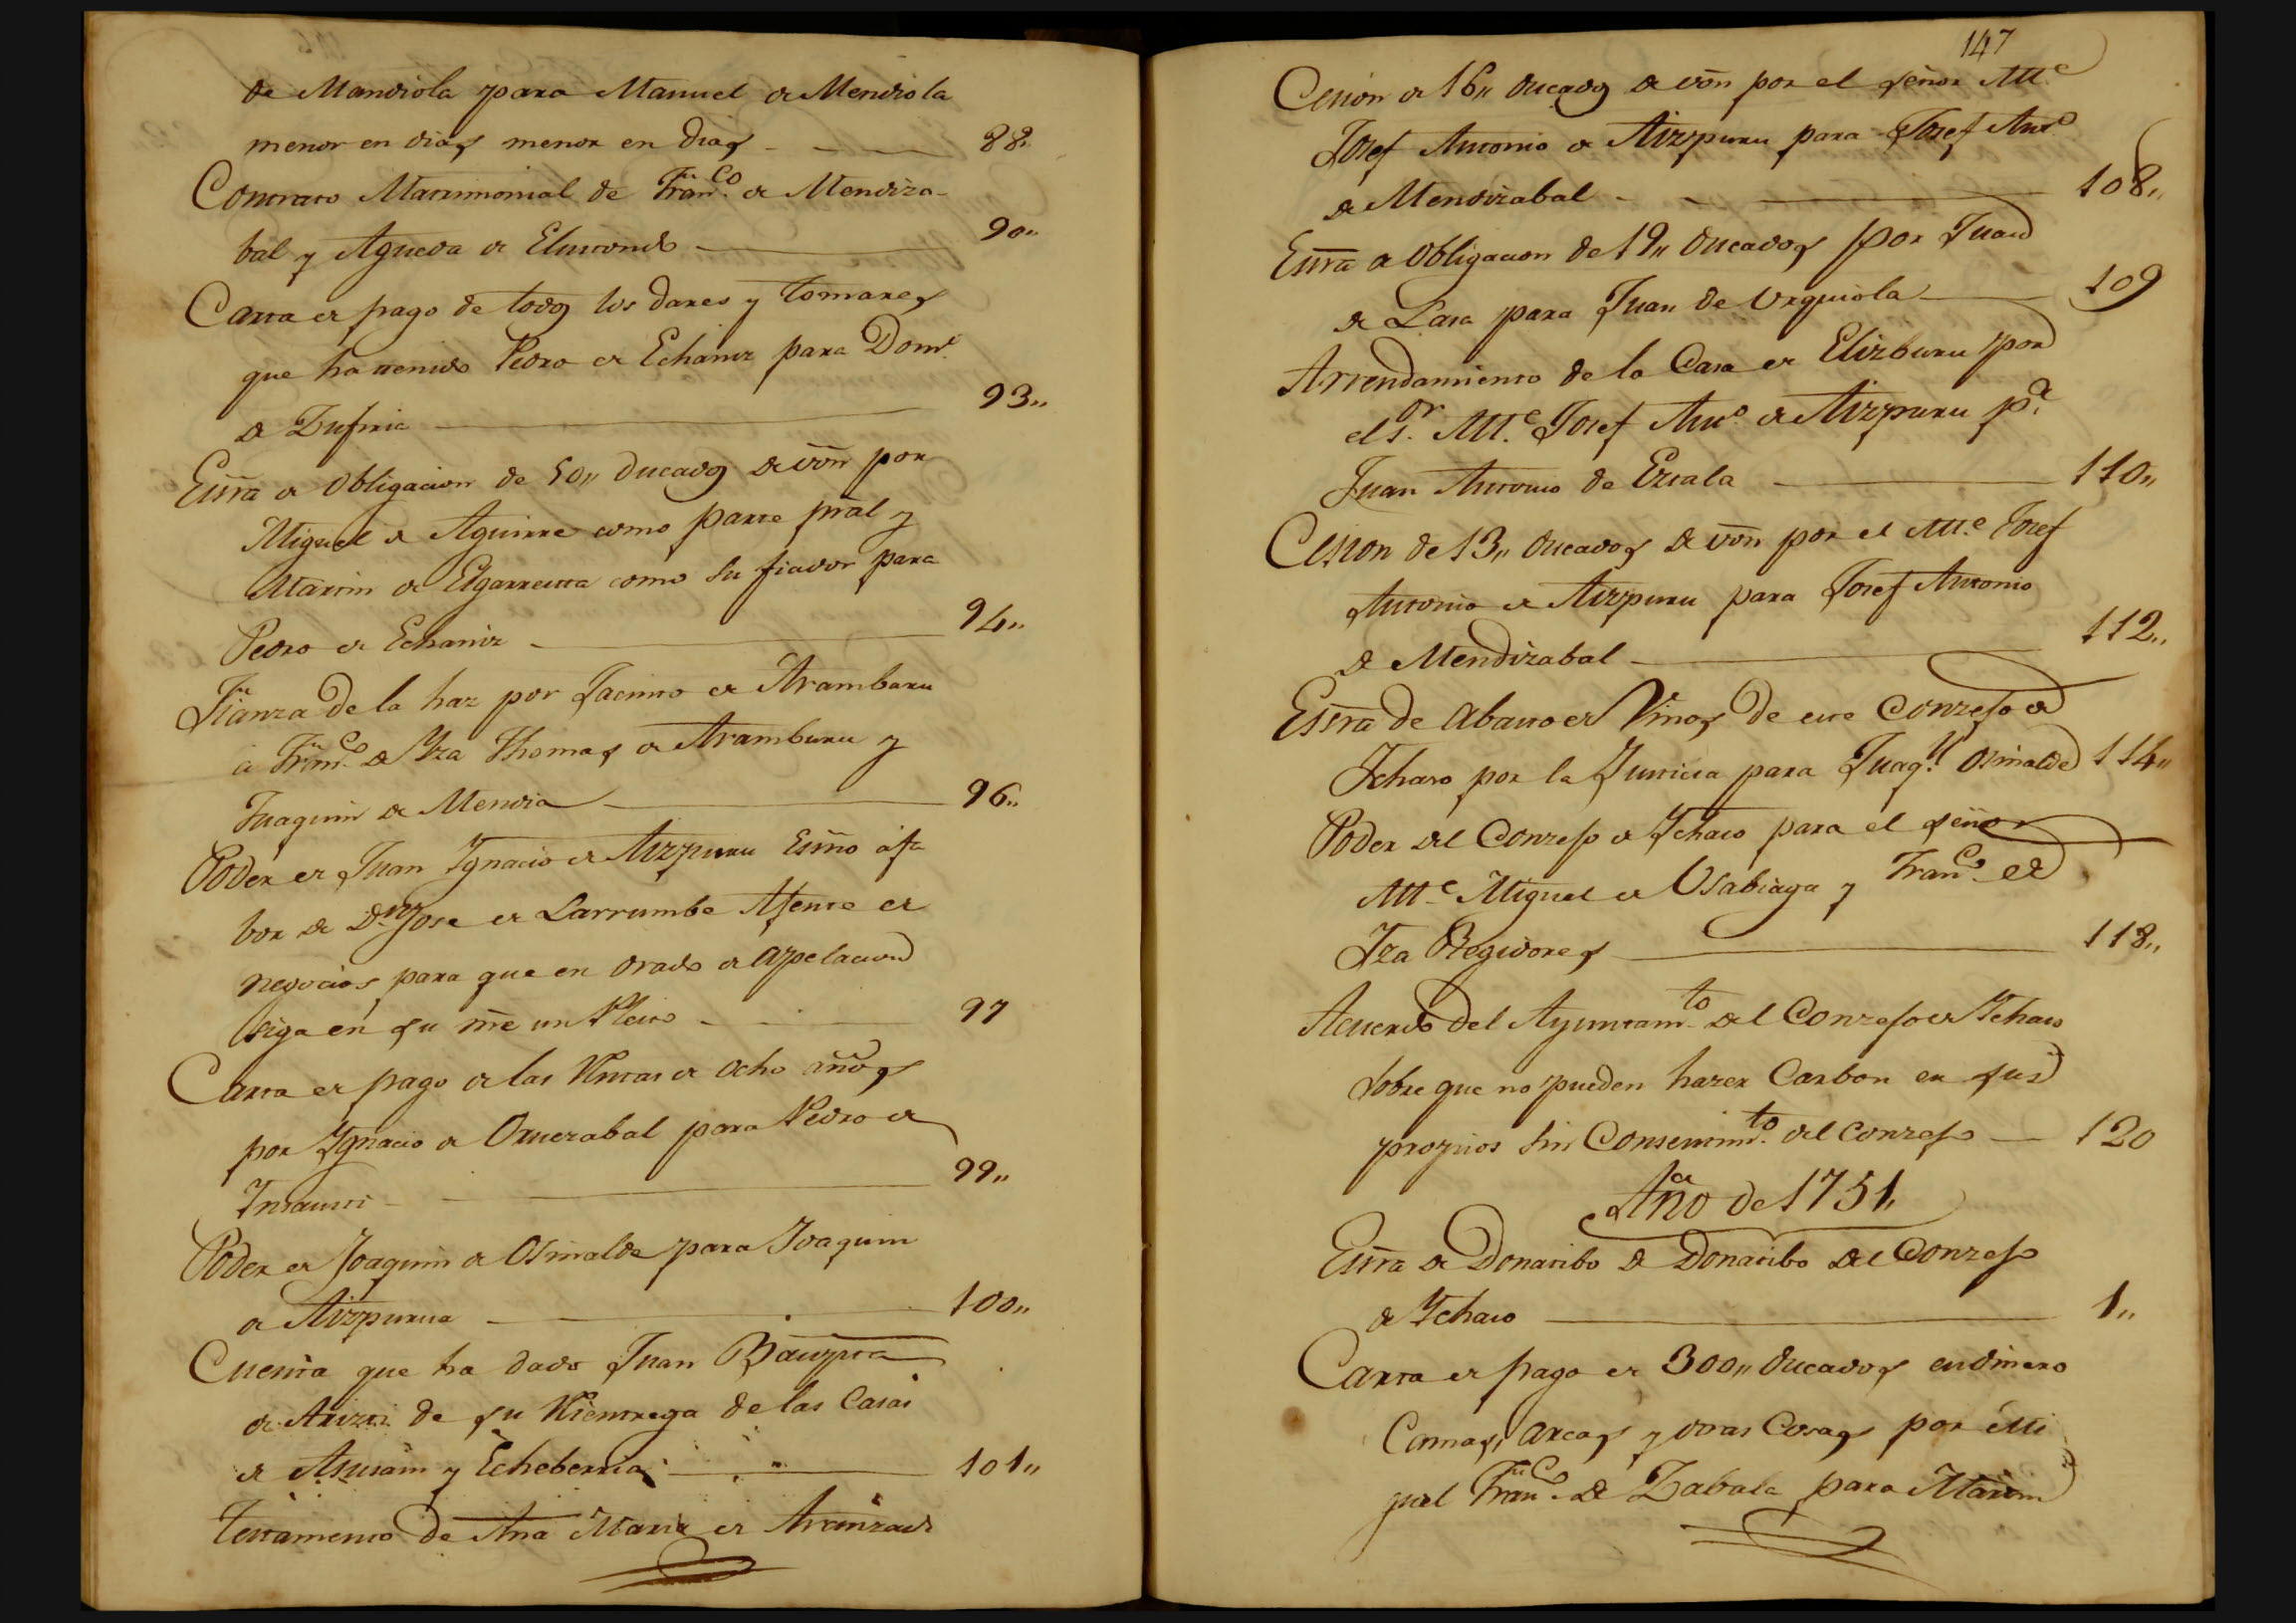 de Mandiola para Manuel de Mendiola
menor en dias menor en dias 88,,
Contrato Matrimonial de Fran.co de Mendiza-
bal y Agueda de Elurmondo 90,,
Carta de pago de todos los dares y tomares
que ha tenido Pedro de Echaniz para Dom.o
de Zufiria 93,,
Essra de obligacion de 50,, ducados de von por
Miguel de Aguirre como parte pral y
Martin de Elgarresta como su fiador para
Pedro de Echaniz 94,,
Fianza de la haz por Jacinto de Aramburu
a Fran.co de Yza Thomas de Aramburu y
Juaquin de Mendia 96,,
Poder de Juan Ygnacio de Aizpuru Essno a fa
bor de Dn Jose de Larrumbe Ajente de
negocios para que en grado de apelacion
siga en su nre un Pleito 97
Carta de pago de las Rentas de ocho años
por Ygnacio de Oruezabal para Pedro de
Ynsausti 99,,
Poder de Joaquin de Osinalde para Joaquin
de Aizpurua 100,,
Cuenta que ha dado Juan Bauptta
de Arizti de su Rientrega de las Casas
de Asusain y Echeberria 101,,
Testamento de Ana Maria de Aranzadi
147
Cesion de 16,, ducados de von por el señor Mr.e
Josef Antonio de Aizpuru para Josef Ant.o
de Mendizabal 108,,
Essra de obligacion de 19,, ducados por Juan
de Lasa para Juan de Urquiola 109
Arrendamiento de la Casa de Elizburu por
el S.or M.e Josef Ant.o de Aizpuru p.a
Juan Antonio de Ezcala 110,,
Cesion de 13,, ducados de von por el M.e Josef
Antonio de Aizpuru para Josef Antonio
de Mendizabal 112,,
Essra de abasto de Vinos de este Conzejo de
Ychaso por la Justicia para Juaq.n Osinalde 114,,
Poder del Conzejo de Ychaso para el señor
M.e Miguel de Usabiaga y Fran.co de
Yza Regidores 118,,
Acuerdo del Ayuntam.to del Conzejo de Ychaso
sobre que no pueden hazer Carbon en sus
propios sin Consentim.to del Conzejo 120
Año de 1751,,
Essra de Donatibo de Donatibo del Conzejo
de Ychaso 1,,
Carta de pago de 300,, ducados en dinero
Camas, arcas y otras Cosas por Mi
guel Fran.co de Zabala para Martin